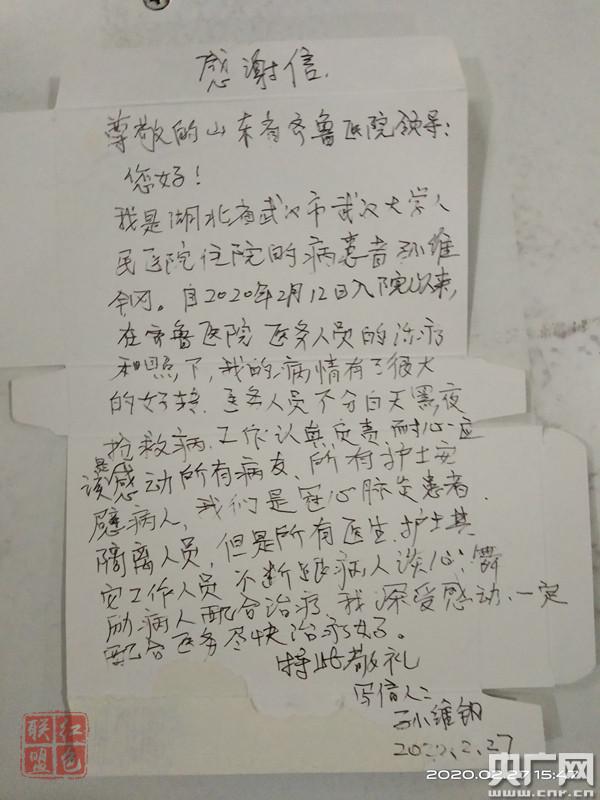 感谢信.
尊敬的山东省齐鲁医院领导:
您好!
我是湖北省武汉市武汉大学人
民医院住院的病患者孙维
钢。自2020年2月12日入院以来,
在齐鲁医院医务人员的治疗
和照下,我的病情有了很大
的好转.医务人员不分白天黑夜
抢救病.工作认真负责.耐心.应
该是感动所有病友.所有护士安
慰病人,我们是冠心肺炎患者.
隔离人员,但是所有医生.护士其
它工作人员不断跟病人谈心.
励病人配合治疗.我深受感动.一定
配合医务尽快治疗好。
特此敬礼
写信人:
孙维钢
2020.2.27
红色
联盟
2020.02.27 15:47
央广网
www.cnr.cn